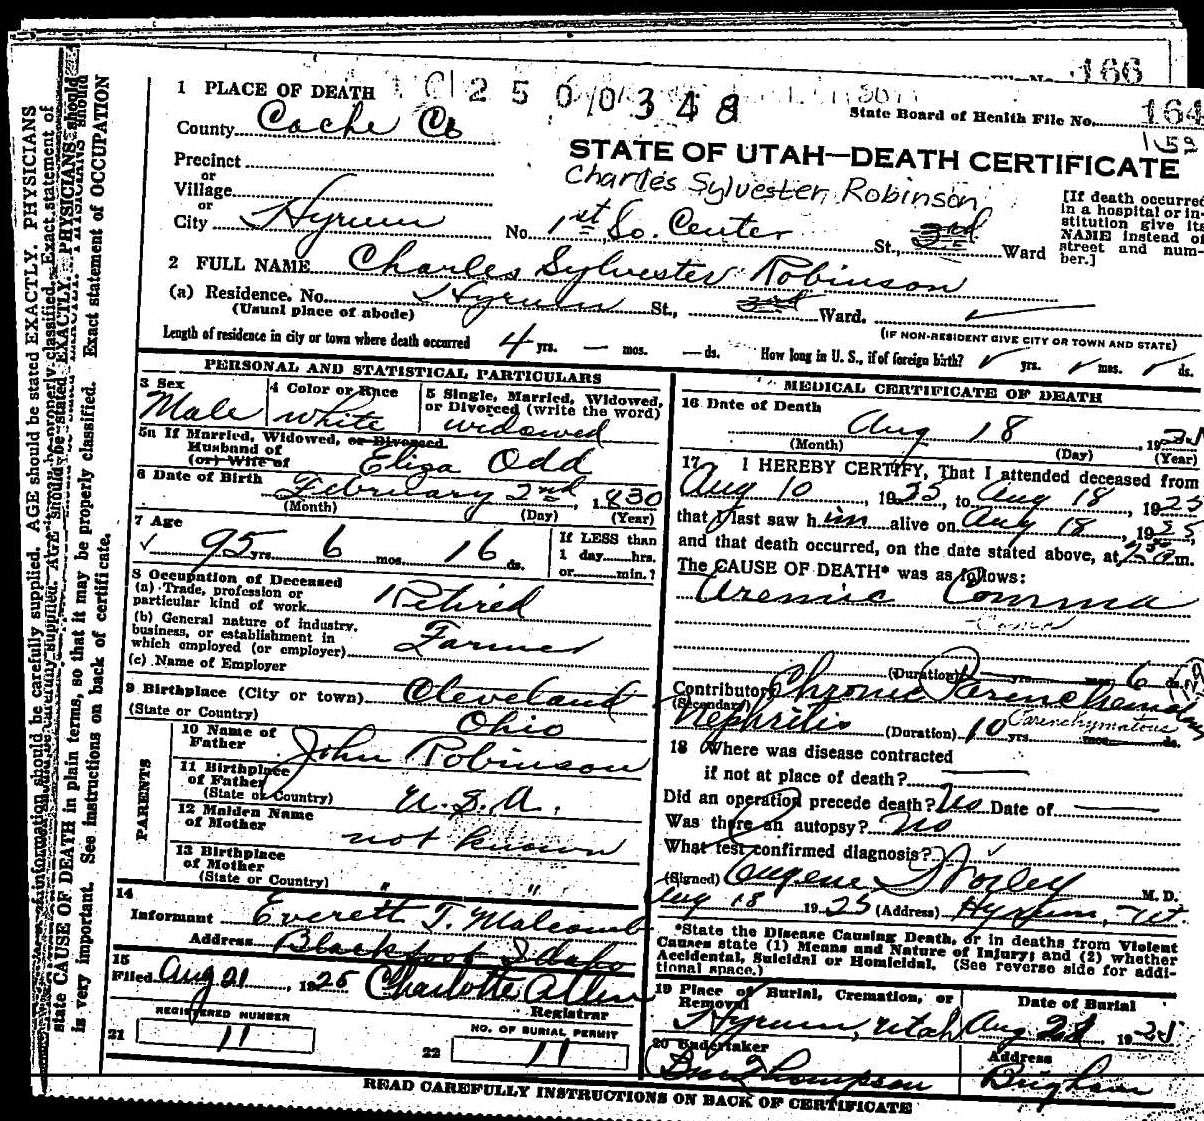 166
1 PLACE OF DEATH
2500348
State Board of Health File No. 164
County Cache Co
STATE OF UTAH—DEATH CERTIFICATE
Charles Sylvester Robinson
Precinct
or
Village
or
City Hyrum No. 1st So. Center St., 3rd Ward
[If death occurred in a hospital or institution give its NAME instead of street and number.]
2 FULL NAME Charles Sylvester Robinson
(a) Residence. No. Hyrum St., 3rd Ward.
(Usual place of abode)
(IF NON-RESIDENT GIVE CITY OR TOWN AND STATE)
Length of residence in city or town where death occurred 4 yrs. — mos. — ds. How long in U. S., if of foreign birth? ✓ yrs. ✓ mos. ✓ ds.
PERSONAL AND STATISTICAL PARTICULARS
3 Sex
Male
4 Color or Race
white
5 Single, Married, Widowed, or Divorced (write the word)
widowed
5a If Married, Widowed, or Divorced
Husband of
(or) Wife of
Eliza Odd
6 Date of Birth
February 2nd, 1830
(Month) (Day) (Year)
7 Age
✓ 95 yrs. 6 mos. 16 ds.
If LESS than
1 day......hrs.
or......min.?
8 Occupation of Deceased
(a) Trade, profession or
particular kind of work Retired
(b) General nature of industry,
business, or establishment in
which employed (or employer) Farmer
(c) Name of Employer
9 Birthplace (City or town) Cleveland
(State or Country) Ohio
PARENTS
10 Name of
Father John Robinson
11 Birthplace
of Father
(State or Country) U. S. A.
12 Maiden Name
of Mother not known
13 Birthplace
of Mother
(State or Country) " "
14
Informant Everett T. Malcomb
Address Blackfoot Idaho
15
Filed Aug 21, 1925 Charlotte Allen
Registrar
21 REGISTERED NUMBER
11
22 NO. OF BURIAL PERMIT
11
MEDICAL CERTIFICATE OF DEATH
16 Date of Death
Aug 18, 1925
(Month) (Day) (Year)
17 I HEREBY CERTIFY, That I attended deceased from
Aug 10, 1925, to Aug 18, 1925
that I last saw him alive on Aug 18, 1925,
and that death occurred, on the date stated above, at m.
The CAUSE OF DEATH* was as follows:
Uremic Comma
Coma
(Duration) yrs. mos. 6 ds.
Contributory Chronic Parenchematus
(Secondary)
Nephritis (Duration) 10 yrs. mos. ds.
Parenchymatous
18 Where was disease contracted
if not at place of death? —
Did an operation precede death? No Date of —
Was there an autopsy? No
What test confirmed diagnosis? ✓
(Signed) Eugene Worley M. D.
Aug 18 1925 (Address) Hyrum, Ut.
*State the Disease Causing Death, or in deaths from Violent
Causes state (1) Means and Nature of Injury; and (2) whether
Accidental, Suicidal or Homicidal. (See reverse side for additional space.)
19 Place of Burial, Cremation, or Removal
Hyrum, Utah
Date of Burial
Aug 21 1925
20 Undertaker
Thompson
Address
Brigham
READ CAREFULLY INSTRUCTIONS ON BACK OF CERTIFICATE
information should be carefully supplied. AGE should be stated EXACTLY. PHYSICIANS should
state CAUSE OF DEATH in plain terms, so that it may be properly classified. Exact statement of OCCUPATION
is very important. See instructions on back of certificate.